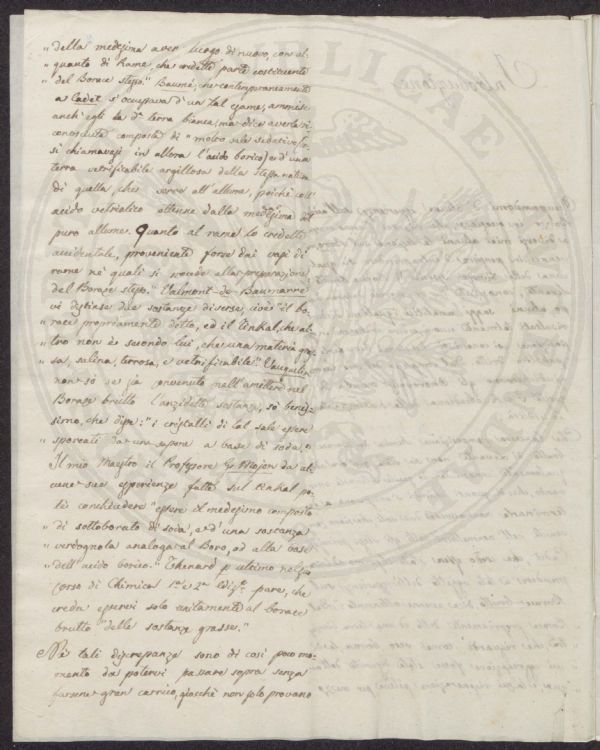 " della medesima aver luogo di nuovo, con al-
" quanto di Rame, che credette parte costituente
" del Borace stesso." Baumé, che contemporaneamente
a Cadet s'occupava d'un tal esame, ammise
anch'egli la dª terra bianca; ma dice averla ri-
conosciuta composta di " molto sale sedativo (co-
si chiamavasi in allora l'acido borico) e d'una
terra vetrificabile argillosa della stessa natura
di quella che serve all'allume, poichè coll'
acido vetriolico ottenne dalla medesima del
puro allume. Quanto al rame lo credette
accidentale, proveniente forse dai vasi di
rame ne' quali si procede alla preparazione
del Borace stesso." Valmont-de Baumarre
vi distinse due sostanze diverse, cioè " il bo-
" race propriamente detto, ed il tinkal, che al-
" tro non è secondo lui, che una materia gras-
" sa, salina, terrosa, e vetrificabile." Vauquelin
non so se sia pervenuto nell'amettere nel
Borace brutto l'anzidetta sostanza, so benis-
simo, che disse: " i cristalli di tal sale essere
" sporcati da un sapone a base di soda."
Il mio Maestro il Professore G. Mojon da al-
cune sue esperienze fatte sul tinkal po-
tè conchiudere " essere il medesimo composto
" di sottoborato di soda, e d'una sostanza
" verdognola analoga al Boro, od alla base
" dell'acido borico." Thenard p ultimo nel suo
Corso di Chimica 1ª e 2ª Ediz.ᵉ pare, che
creda esservi solo unitamente al borace
brutto " delle sostanze grasse."
Nè tali discrepanze sono di così poco mo-
mento da potervi passare sopra senza
farsene gran carrico, giacchè non solo provano